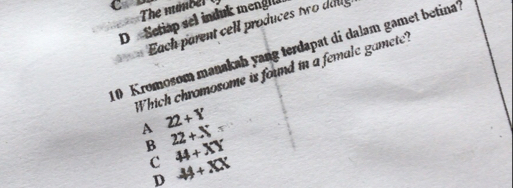 C
The number
D Setiap sel induk
Each parent cell produces two
10 Kromosom manakah yang terdapat di dalam gamet betina?
Which chromosome is found in a female gamete?
A 22 + Y
B 22 + X
C 44 + XY
D 44 + XX